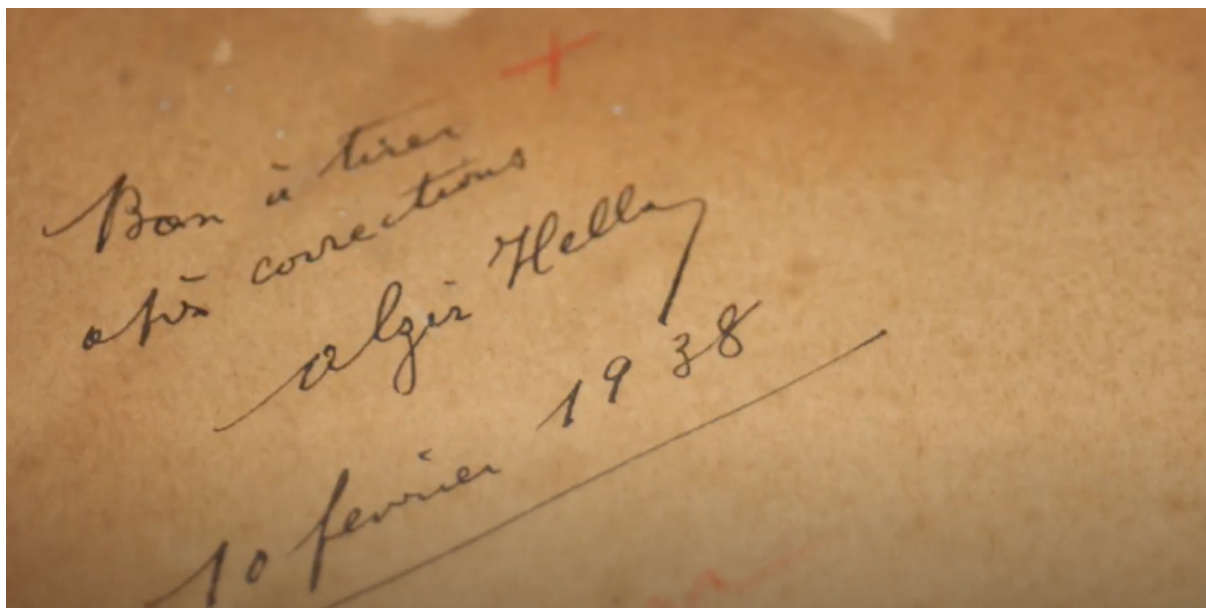 Bon à tirer
après corrections
Alzir Hella
10 fevrier 1938